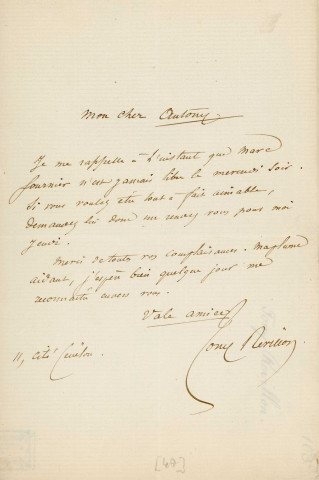 mon cher Antony
Je me rappelle à l'instant que marc
fournier n'est jamais libre le mercredi soir.
Si vous voulez être tout à fait aimable,
demandez lui donc un rendez vous pour moi
jeudi.
Merci de toutes vos complaisances. Ma plume
aidant, j'espère bien quelque jour me
reconnaître envers vous.
Vale amice
Tony Révillon
11, cité
[47]